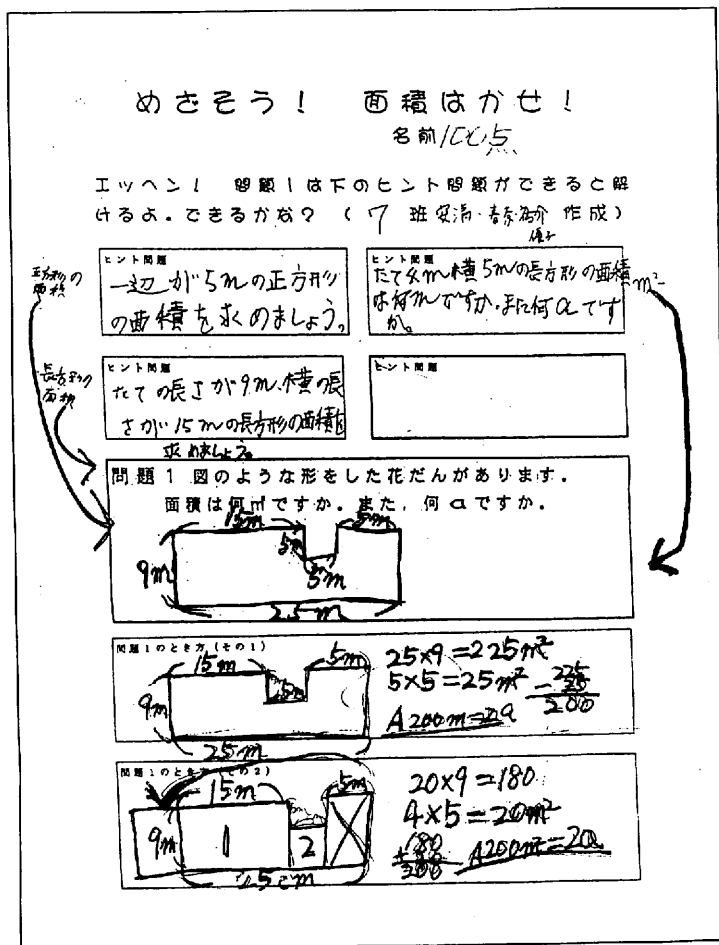 めざそう! 面積はかせ!
名前 100点
エッヘン! 問題1は下のヒント問題ができると解
けるよ。できるかな?( 7 班 作成)
正方形の
面積
ヒント問題
一辺が5mの正方形
の面積を求めましょう。
ヒント問題
たて4m横5mの長方形の面積
は何m²ですか。また何aです
か。
長方形の
面積
ヒント問題
たての長さが9m、横の長
さが15mの長方形の面積を
求めましょう。
ヒント問題
問題1 図のような形をした花だんがあります。
面積は何㎡ですか。また、何aですか。
15m 5m
5m
9m 5m
25m
問題1のとき方(その1)
15m 5m
9m 5m
25m
25×9=225m²
5×5=25m²
225
-25
200
A200m=2a
問題1のとき方(その2)
15m 5m
9m 1 2
25cm
20×9=180
4×5=20m²
180
200
A200m²=2a